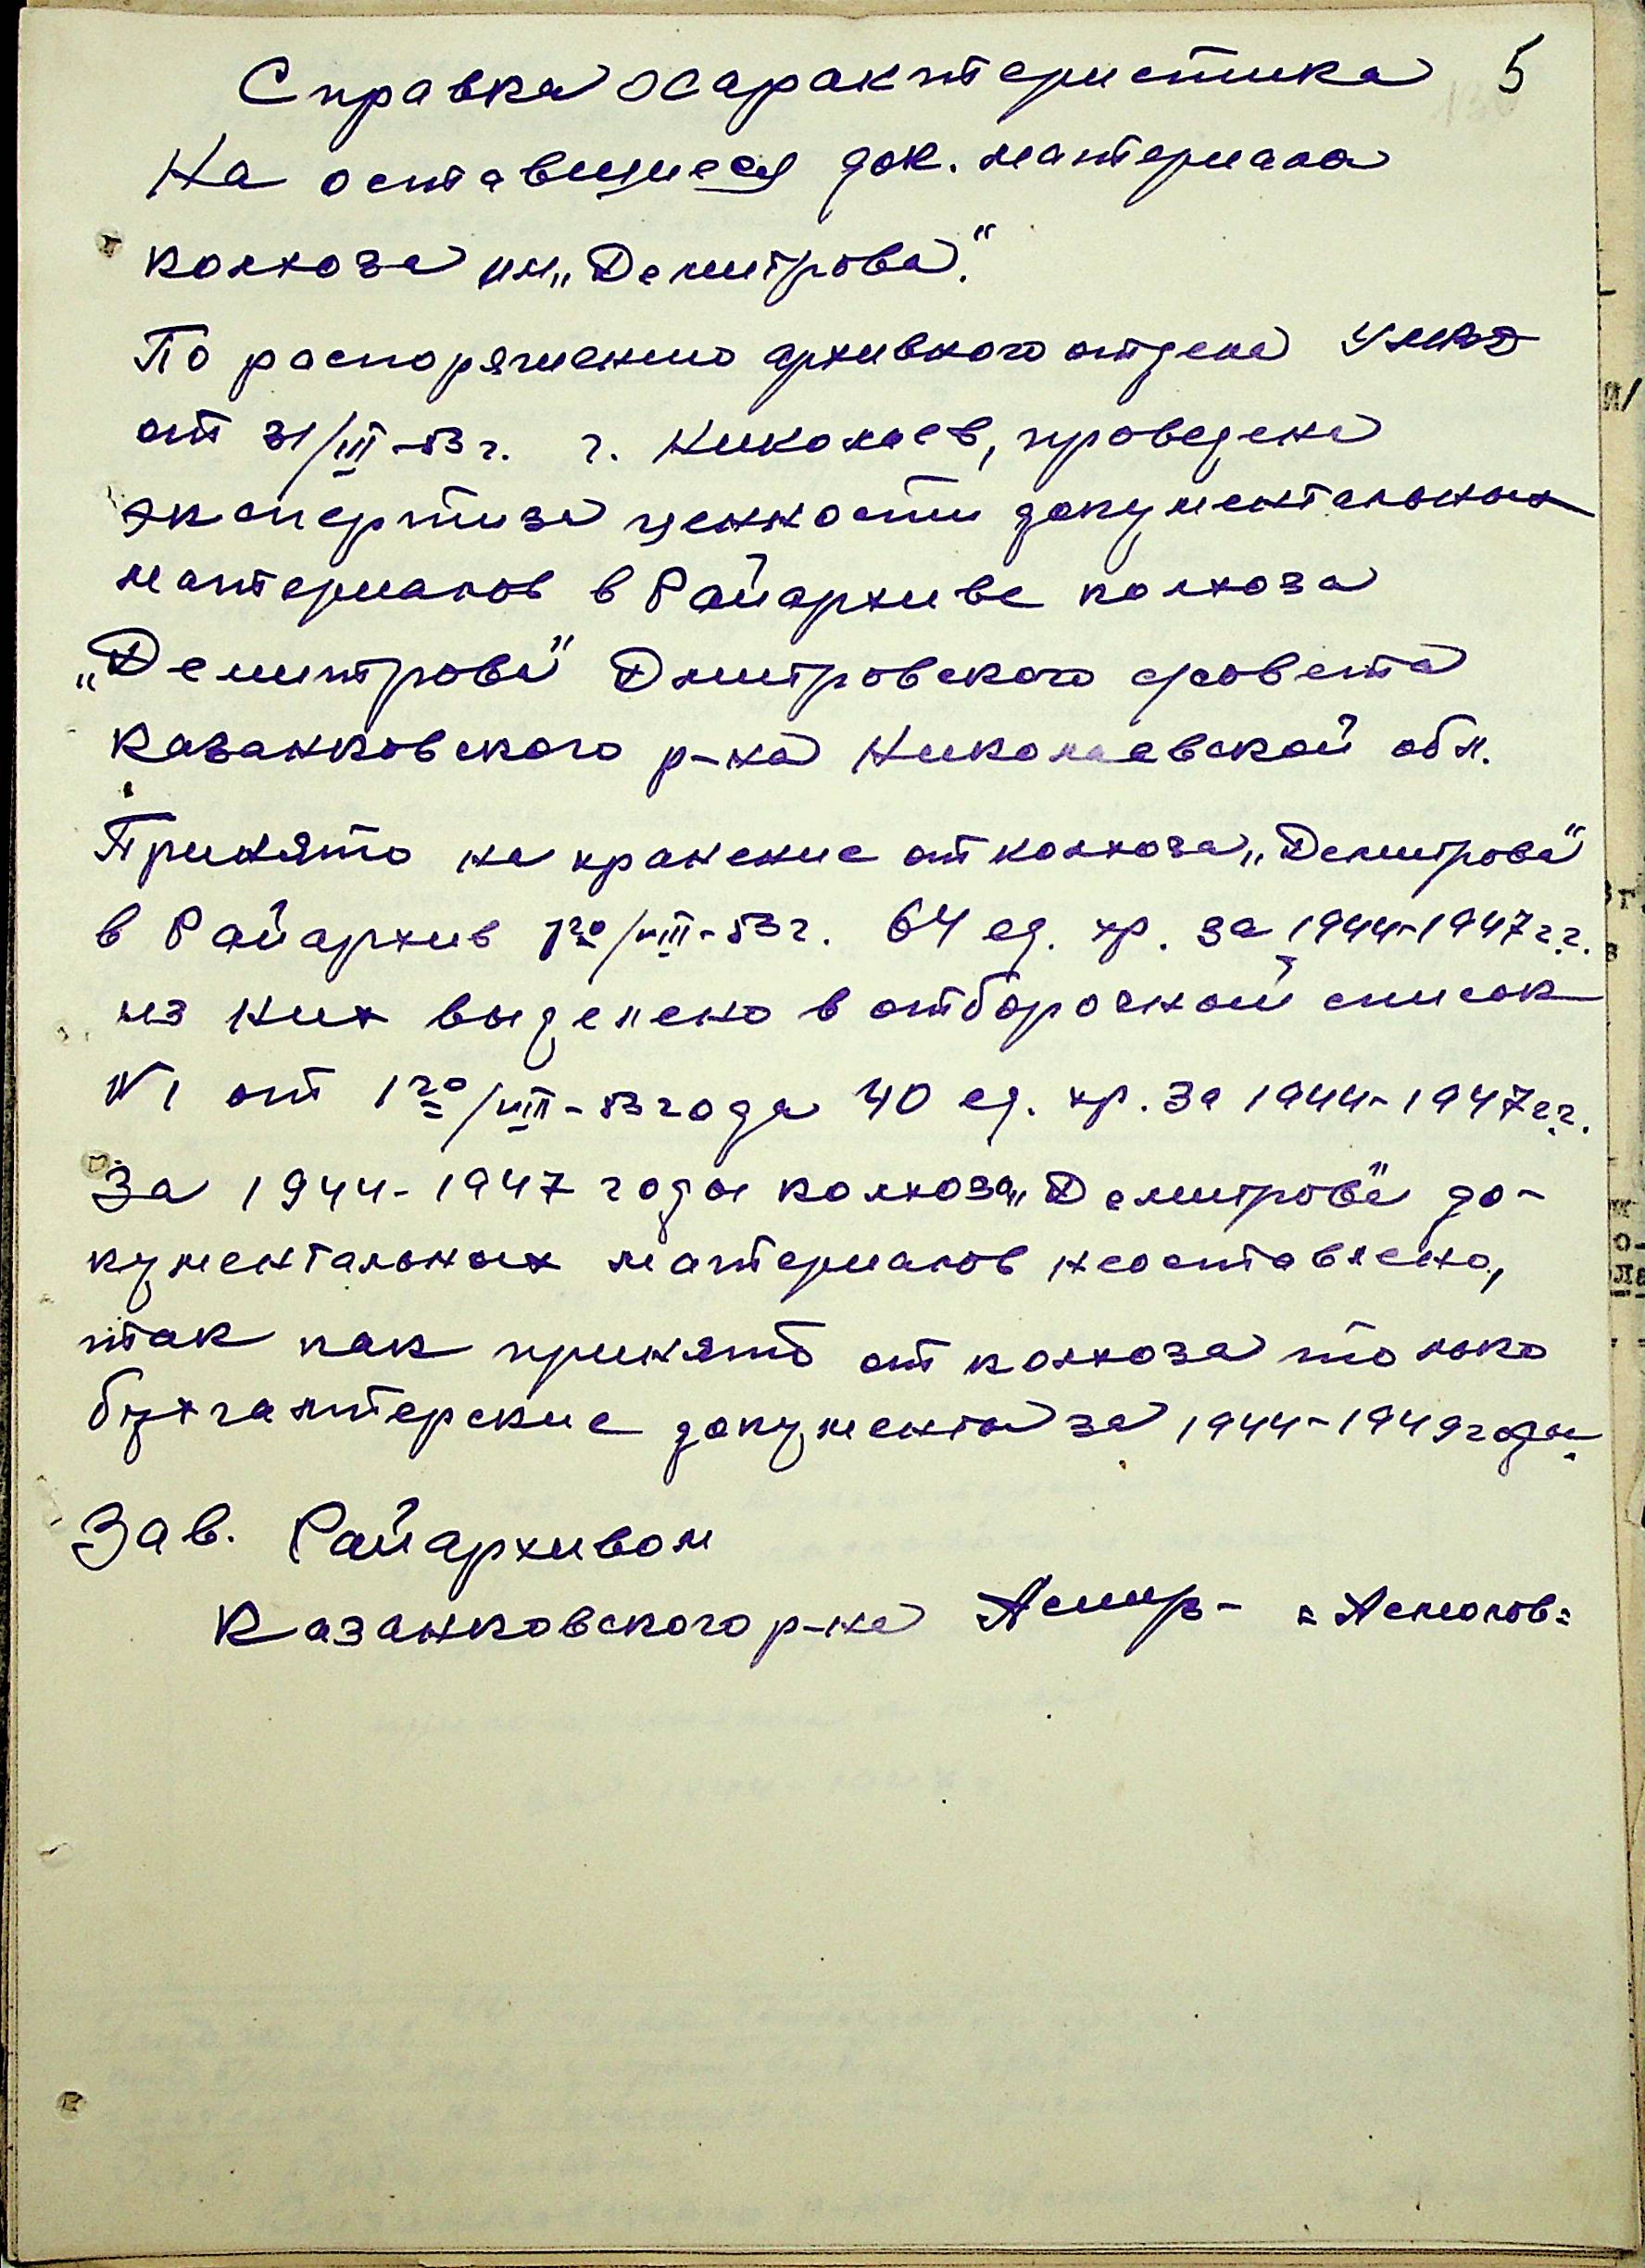 Справка характеристика 5
На оставшиеся док. материала
колхоза им „Демитрова".
По распоряжению архивного отдела УМВД
от 31/III-53 г. г. Николаев, проведена
экспертиза ценности документальных
материалов в Райархиве колхоза
„Демитрова" Дмитровского с/совета
Казанковского р-на Николаевской обл.
Принято на хранение от колхоза „Демитрова"
в Райархив 1го/VIII-53 г. 64 ед. хр. за 1944-1947 г.г.
из них выделено в отборочный список
№1 от 1го/VIII-53 года 40 ед. хр. за 1944-1947 г.г.
За 1944-1947 годы колхоза „Демитрова" до-
кументальных материалов неоставлено,
так как принято от колхоза только
бухгалтерские документы за 1944-1949 годы.
Зав. Райархивом
Казанковского р-на